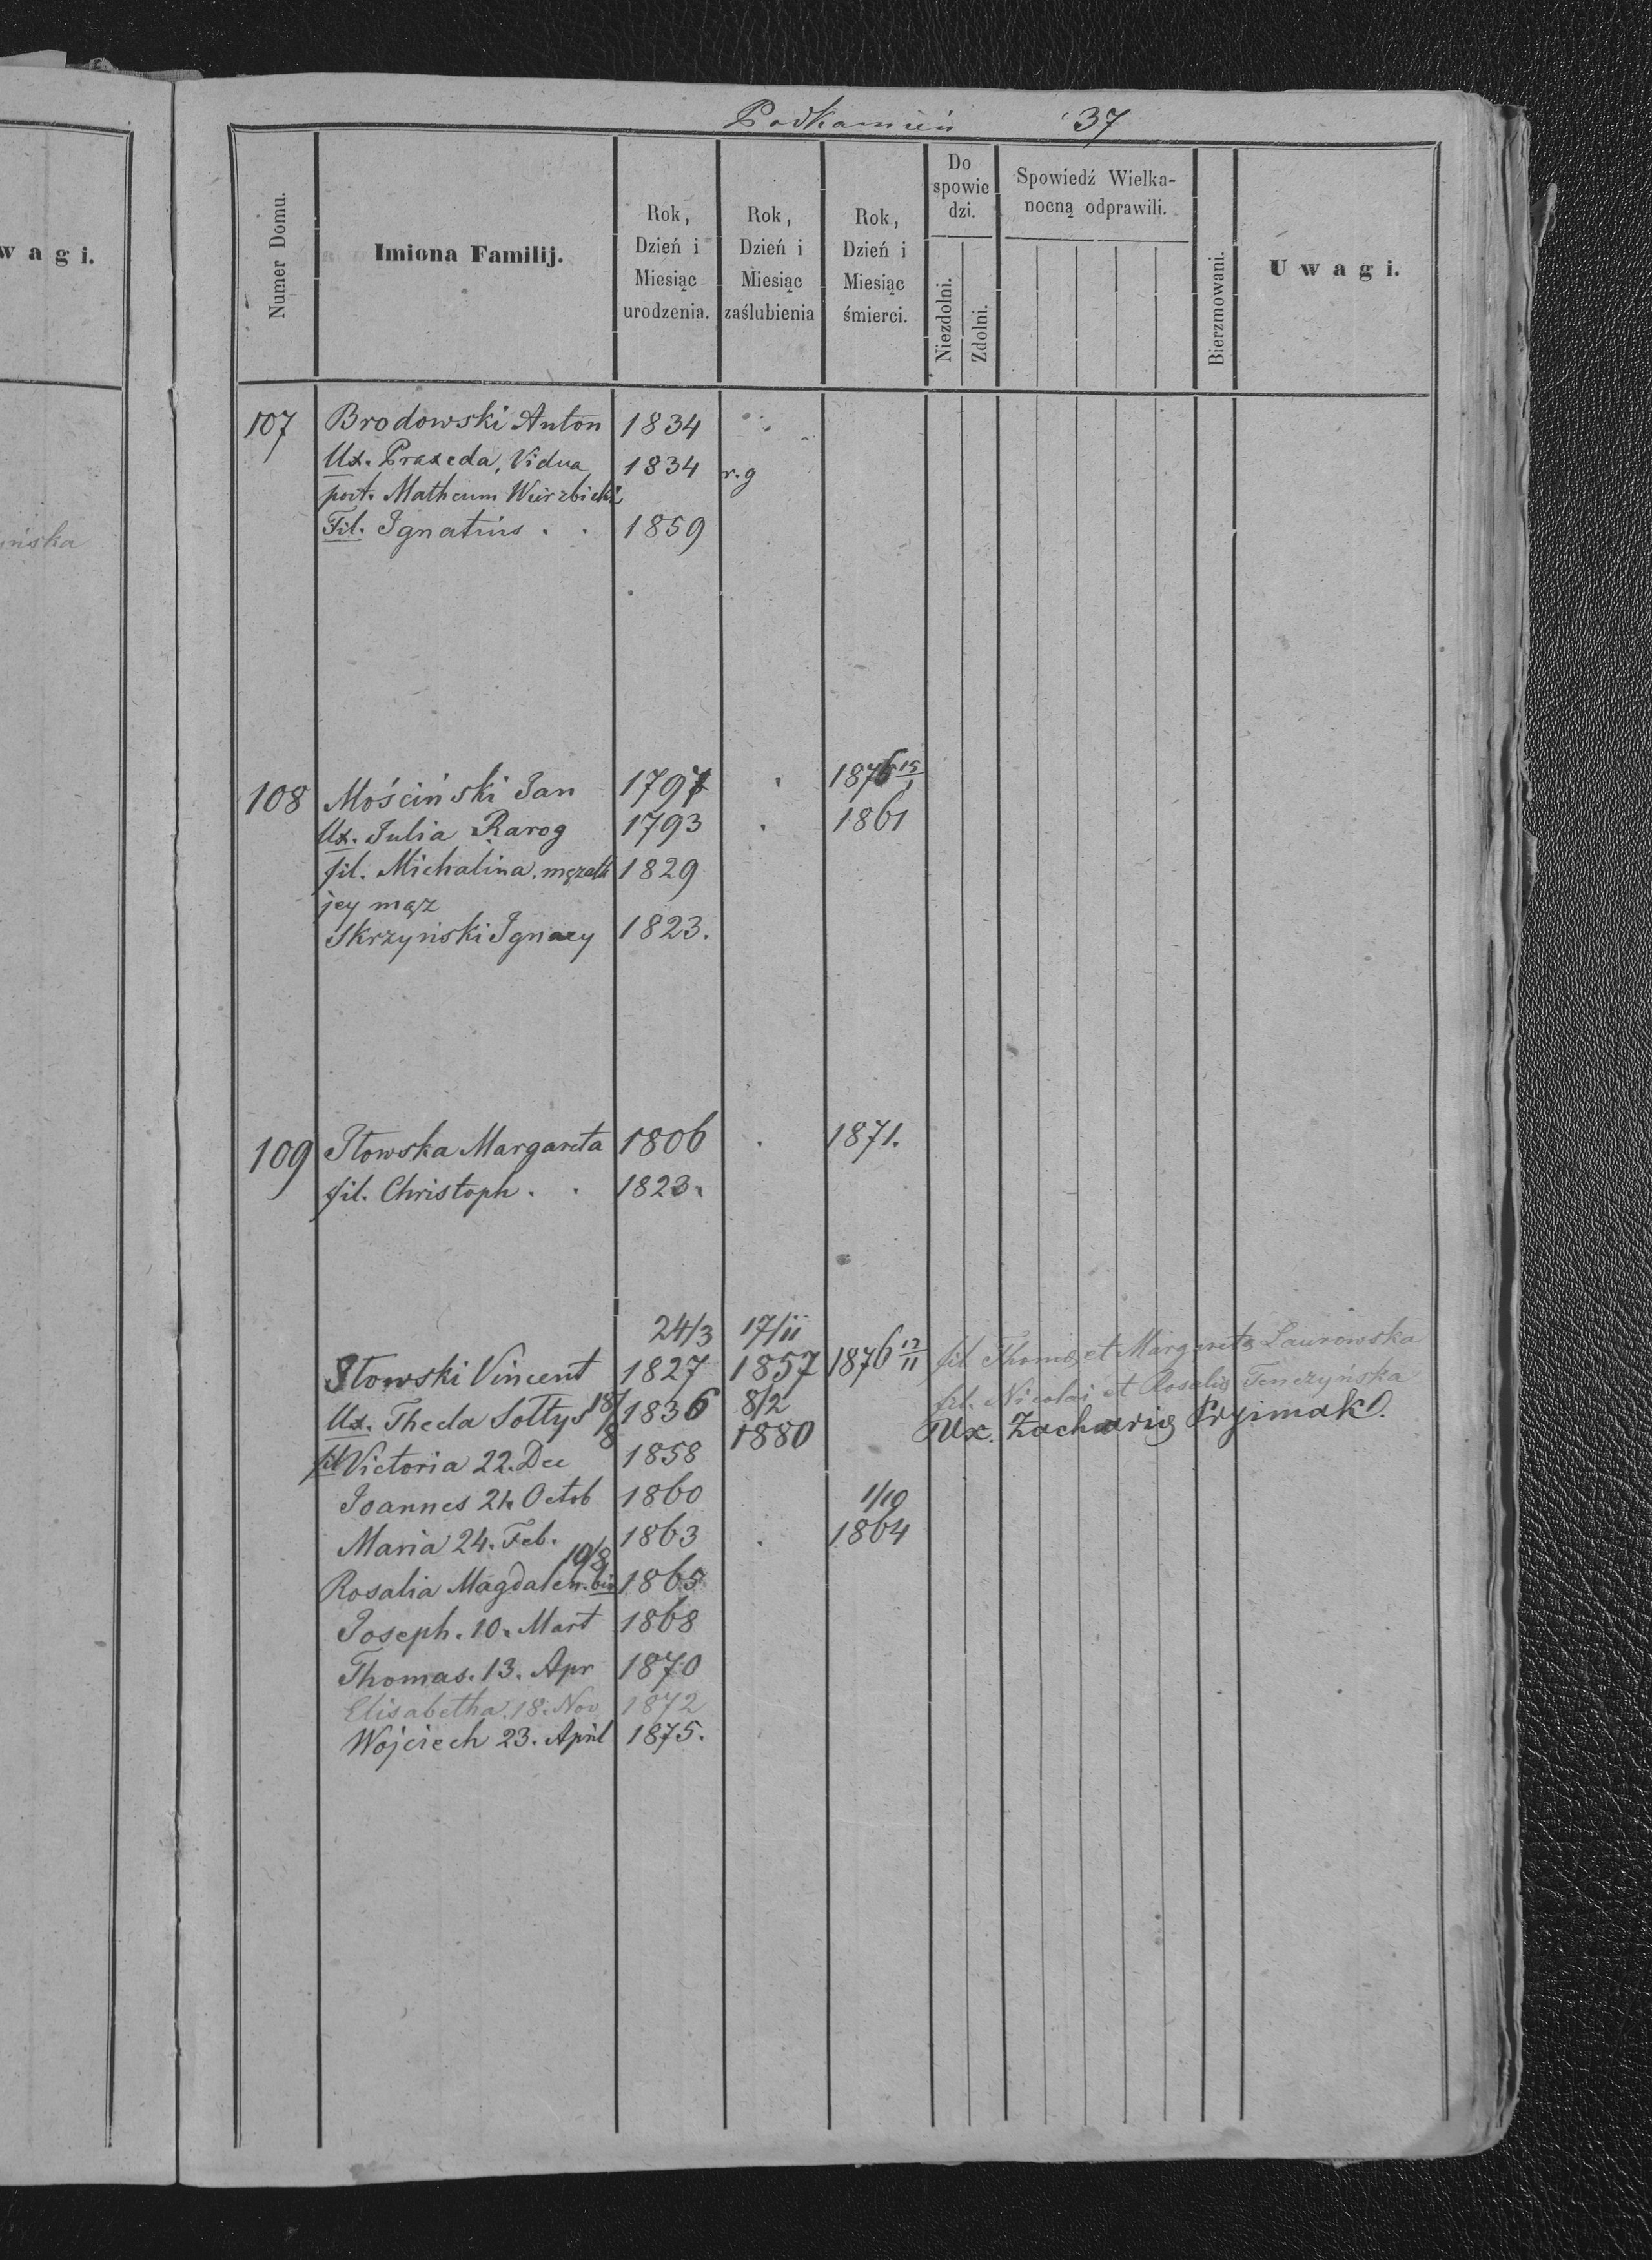 Podkamień 37
w a g i.
Numer Domu.
Imiona Familij.
Rok, Dzień i Miesiąc urodzenia.
Rok, Dzień i Miesiąc zaślubienia
Rok, Dzień i Miesiąc śmierci.
Do spowiedzi.
Niezdolni.
Zdolni.
Spowiedź Wielkanocną odprawili.
Bierzmowani.
U w a g i.
ińska
107 Brodowski Anton 1834
Ux. Praxeda, Vidua 1834 r.g
post. Matheum Wierzbicki
Fil. Ignatius . . 1859
108 Mościński Jan 1797 . 1876 15/1
Ux. Julia Rarog 1793 . 1861
fil. Michalina, mężatk 1829
jey mąż
Skrzyński Ignacy 1823.
109 Iłowska Margareta 1806 . 1871.
fil. Christoph . . 1823.
24/3 17/11
Iłowski Vincent 1827 1857 1876 12/11 fil Thomę et Margaretę Laurowska
Ux. Thecla Sołtys 18/8 1836 8/2 1880 fil. Nicolai et Rosalię Tenczyńska
Ux. Zacharię Pryimak.
fil Victoria 22. Dec 1858
Joannes 21. Octob 1860 1/10
Maria 24. Feb. 1863 . 1864
Rosalia Magdalen. bin 10/8 1865
Joseph. 10. Mart 1868
Thomas. 13. Apr 1870
Elisabetha. 18. Nov 1872
Wojciech 23. April 1875.